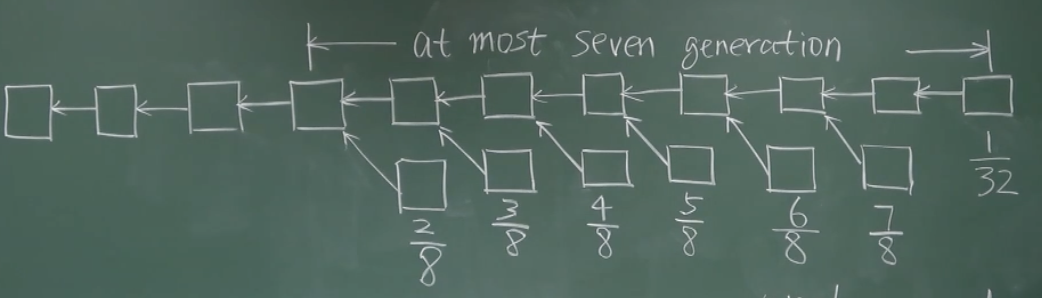 at most seven generation
1/32
2/8
3/8
4/8
5/8
6/8
7/8